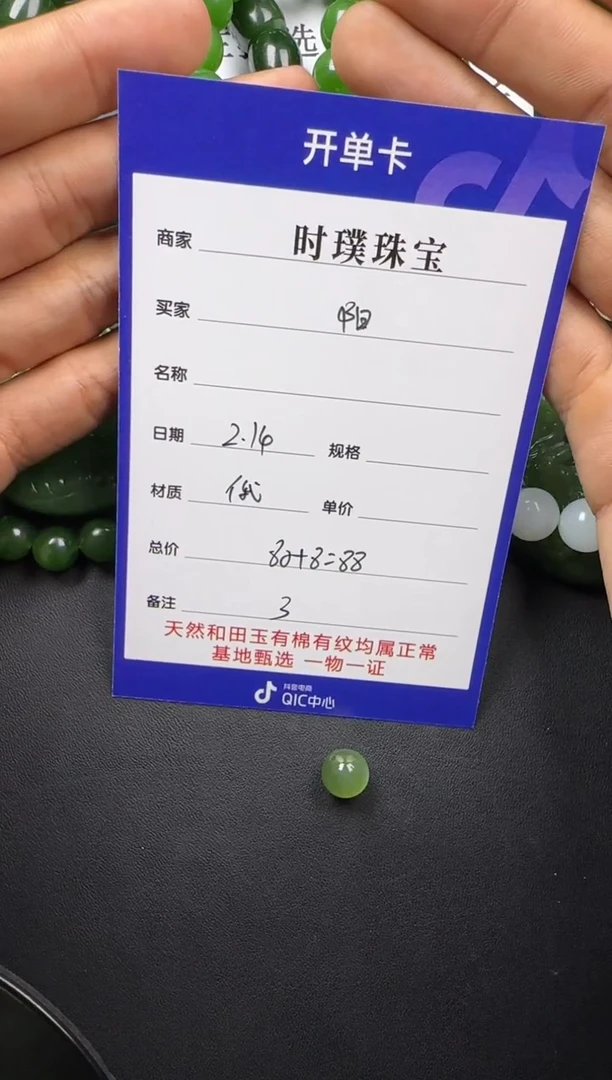 选
开单卡
商家 时璞珠宝
买家
名称
日期 2.14 规格
材质 俄 单价
总价 80+8=88
备注 3
天然和田玉有棉有纹均属正常
基地甄选 一物一证
抖音电商
QIC中心